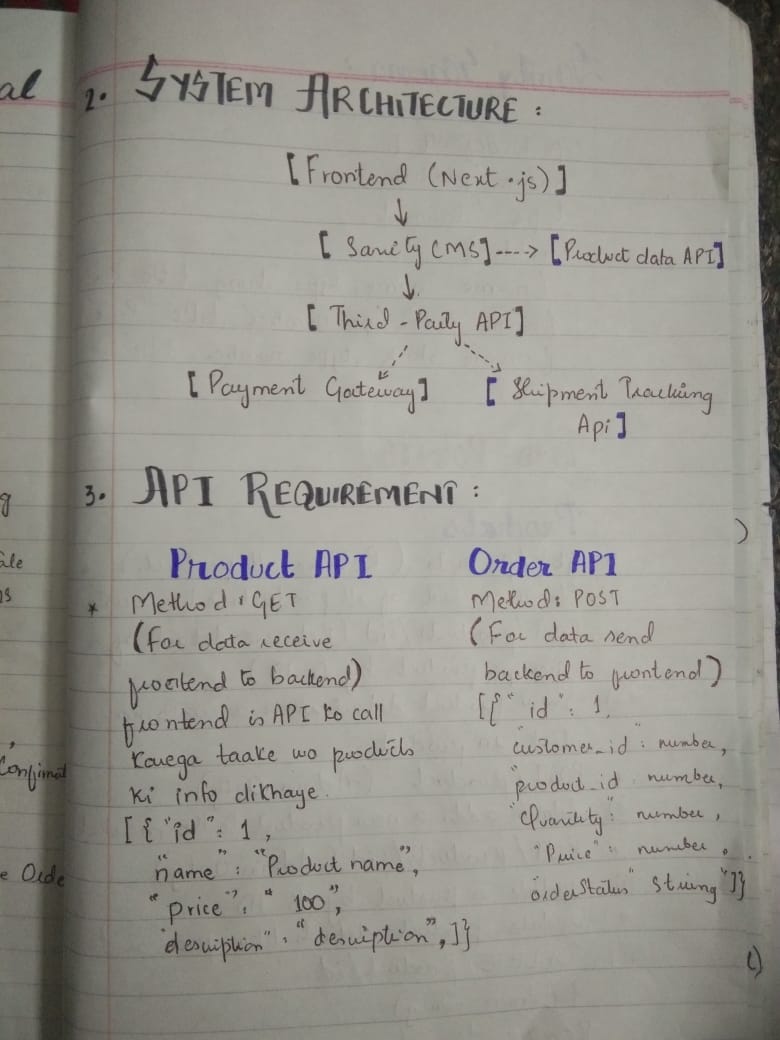 al
2. SYSTEM ARCHITECTURE :
[Frontend (Next.js)]
↓
[Sanity CMS] ----> [Product data API]
↓
[Third-Party API]
[Payment Gateway] [Shipment Tracking
Api]
3. API REQUIREMENT :
g
Product API
* Method : GET
(For data receive
frontend to backend)
frontend is API ko call
karega taake wo products
ki info dikhaye.
[{ "id" : 1,
"name" : "Product name",
"price" : " 100",
"description" : "description", ]}
Order API
Method: POST
(For data send
backend to frontend)
[{ "id" : 1,
"customer_id" : number,
"product_id number,
"Quantity" : number,
"Price" : number,
orderStatus" string"]}
)